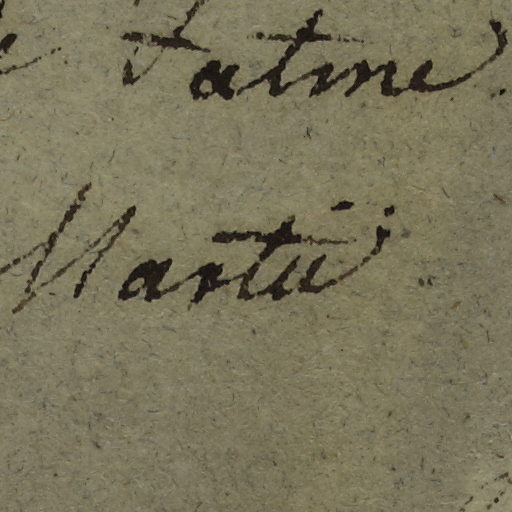 Fatime
Martii